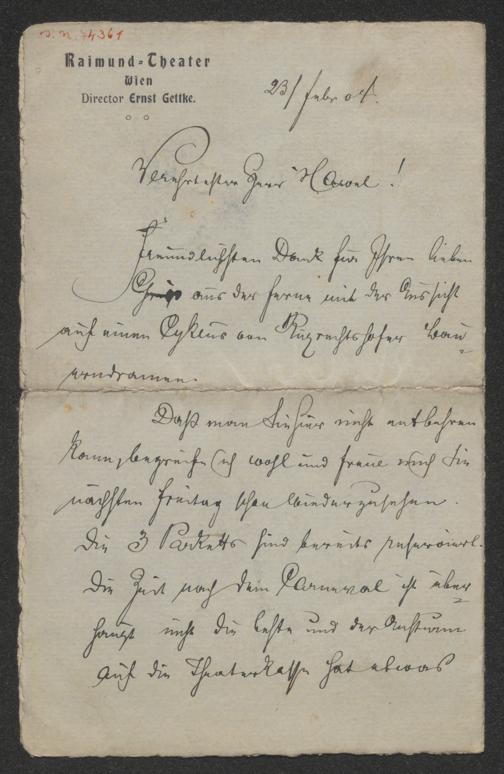 I. N. 74361
Raimund-Theater
Wien
Director Ernst Gettke.
23/ Febr 04.
Verehrtester Herr Hawel!
Freundlichsten Dank für Ihren lieben
aus der Ferne mit der Aussicht
auf einen Cyklus von Ruprechtshofer Bau-
erndramen.
Daß man Sie hier nicht entbehren
kann, begreife ich wohl und freue mich Sie
nächsten Freitag schon wiederzusehen.
Die 3 Parketts sind bereits reserviert.
Die Zeit nach dem Carneval ist über-
haupt nicht die beste und der Ansturm
auf die Theaterkasse hat etwas